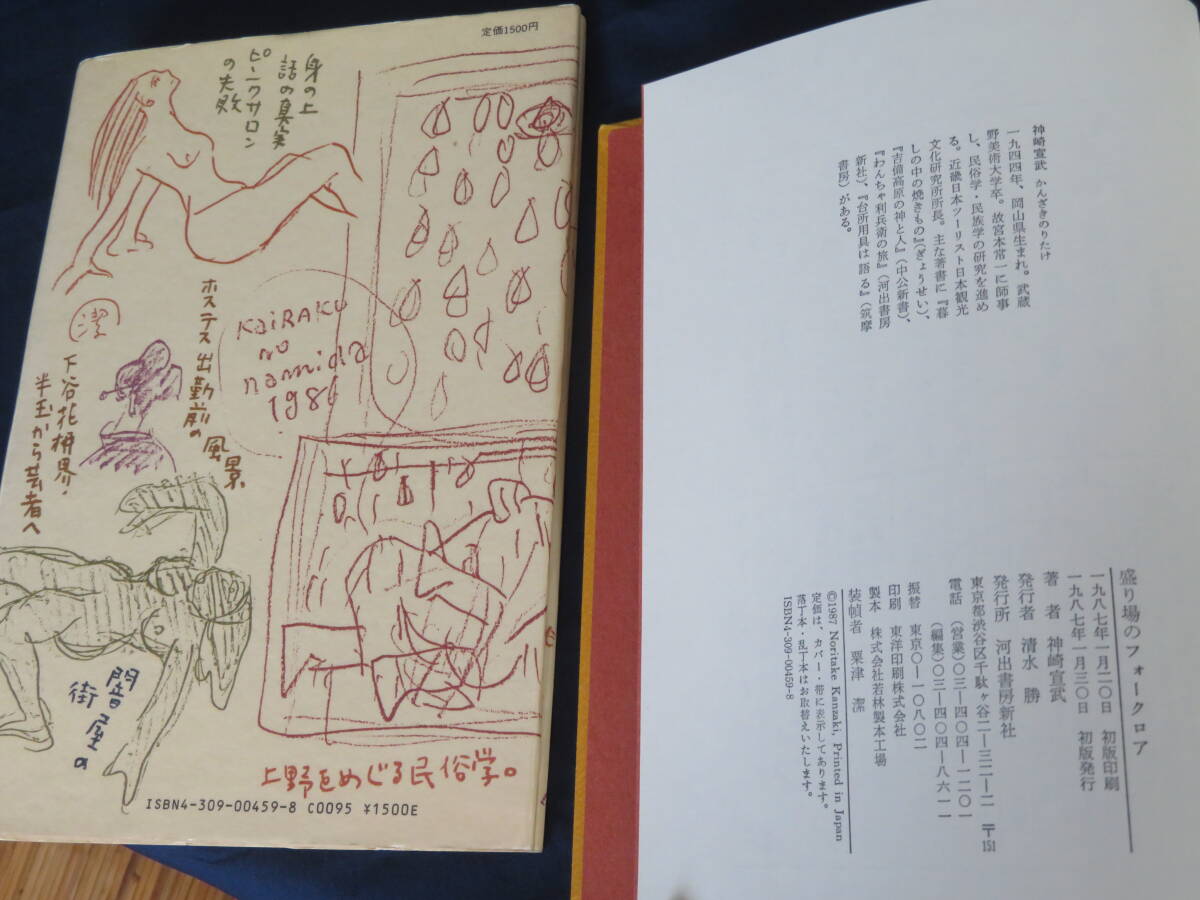 定価1500円
身の上
話の真実
ピンクサロン
の失敗
KaiRAKU
no
namida
1986
潔
ホステス出勤前の
風景
下谷花柳界・
半玉から芸者へ
闇屋の
街
上野をめぐる民俗学。
ISBN4-309-00459-8 C0095 ¥1500E
神崎宣武 かんざきのりたけ
一九四四年、岡山県生まれ。武蔵
野美術大学卒。故宮本常一に師事
し、民俗学・民族学の研究を進め
る。近畿日本ツーリスト日本観光
文化研究所所長。主な著書に『暮
しの中の焼きもの』(ぎょうせい)、
『吉備高原の神と人』(中公新書)、
『わんちゃ利兵衛の旅』(河出書房
新社)、『台所用具は語る』(筑摩
書房)がある。
盛り場のフォークロア
一九八七年一月二〇日 初版印刷
一九八七年一月三〇日 初版発行
著 者 神崎宣武
発行者 清水 勝
発行所 河出書房新社
東京都渋谷区千駄ヶ谷二―三二―二 〒151
電話 (営業)〇三―四〇四―一二〇一
(編集)〇三―四〇四―八六一一
振替 東京〇―一〇八〇二
印刷 東洋印刷株式会社
製本 株式会社若林製本工場
装幀者 粟津 潔
©1987 Noritake Kanzaki, Printed in Japan
定価は、カバー・帯に表示してあります。
落丁本・乱丁本はお取替えいたします。
ISBN4-309-00459-8